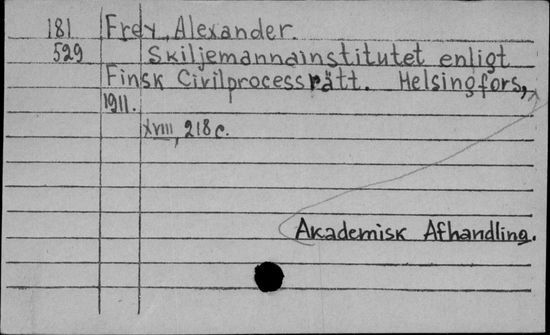 181 Frey, Alexander.
529 Skiljemannainstitutet enligt
Finsk Civilprocessrätt. Helsingfors,
1911.
XVIII, 218 c.
Akademisk Afhandling.